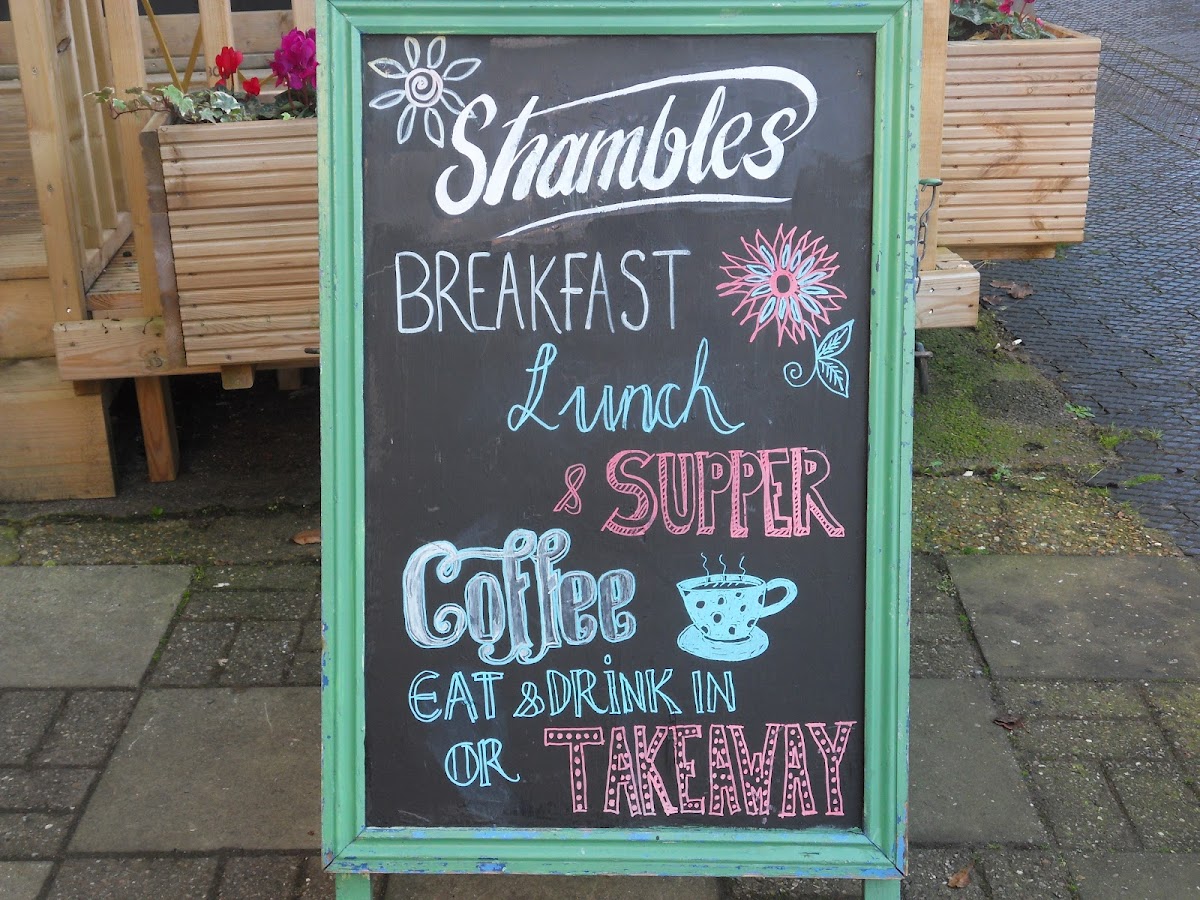 Shambles
BREAKFAST
Lunch
& SUPPER
Coffee
EAT & DRINK IN
OR TAKEAWAY